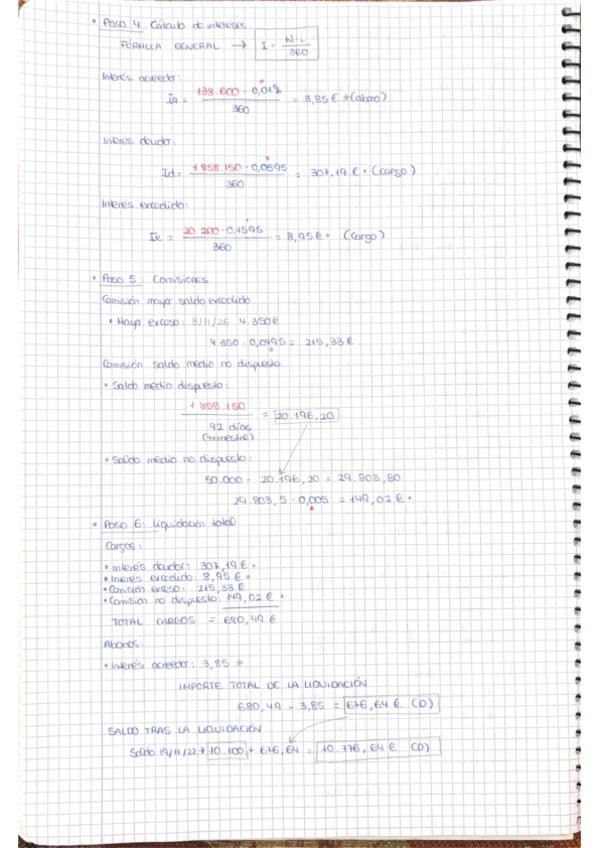 • Paso 4 Cálculo de intereses.
FÓRMULA GENERAL → I = N·i / 360
Interés acreedor:
Ia = 138.600 · 0,01% / 360 = 3,85 € *(abono)
Interés deudor:
Id = 1 858.150 · 0,0595 / 360 = 307,19 € • (cargo)
Interés excedido:
Ie = 20 200 · 0,1595 / 360 = 8,95 € • (cargo)
• Paso 5: Comisiones
Comisión mayor saldo excedido
• Mayor exceso: 3/11/26 4.350 €
4 350 · 0,0495 = 215,33 €
Comisión saldo medio no dispuesto
• Saldo medio dispuesto:
1 858.150 / 92 días (trimestre) = 20.196,20
• Saldo medio no dispuesto:
50.000 - 20.196,20 = 29.803,80
29.803,5 · 0,005 = 149,02 € •
• Paso 6: Liquidación total
Cargos:
• Interés deudor: 307,19 € •
• Interés excedido: 8,95 € •
• Comisión exceso: 215,33 €
• Comisión no dispuesto: 149,02 € •
TOTAL CARGOS = 680,49 €
Abonos:
• Interés acreedor: 3,85 *
IMPORTE TOTAL DE LA LIQUIDACIÓN
680,49 - 3,85 = 676,64 € (D)
SALDO TRAS LA LIQUIDACIÓN
Saldo 19/11/22 → 10.100 + 676,64 = 10.776,64 € (D)